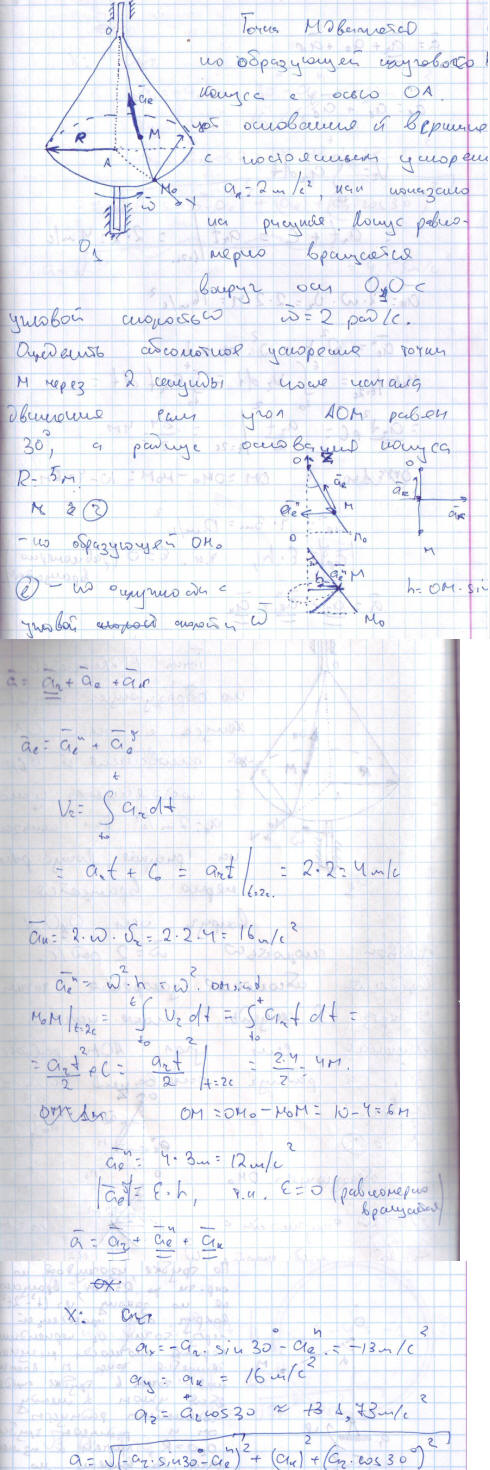 Точка М движется
по образующей кругового
конуса с осью ОА
от основания к вершине
с постоянным ускорен
a_r = 2 м/с², как показано
на рисунке. Конус равно-
мерно вращается
вокруг оси O₁O с
угловой скоростью ω̄ = 2 рад/с.
Определить абсолютное ускорение точки
М через 2 секунды после начала
движения если угол AOM равен
30°, а радиус основания конуса
R = 5 м.
O
a̅r
R
M
A
M₀
X
ω̄
O₁
- по образующей OM₀
(e) - по окружности с
угловой скорости ω̄
O
Z
a̅r
M
M₀
h
M₀
a̅k
M
h = OM · sin
a̅ = a̅r + a̅e + a̅k
a̅e = a̅eⁿ + a̅eᵗ
Vr = ∫ ar dt
= ar t + C₀ = ar t | t=2c. = 2·2 = 4 м/с
a̅k = 2·ω·Vr = 2·2·4 = 16 м/с²
a̅eⁿ = ω²·h = ω²·
M₀M | t=2c = ∫ Vr dt = ∫ ar t dt =
= ar t²/2 + C = ar t²/2 | t=2c = 2·4/2 = 4 м.
OM = OM₀ - M₀M = 10 - 4 = 6 м
a̅eⁿ = 4·3 м = 12 м/с²
|a̅eᵗ| = ε·h, т.к. ε = 0 (равномерно
вращается)
a̅ = a̅r + a̅eⁿ + a̅k
X:
ax = -ar·sin 30° - aeⁿ = -13 м/с²
ay = ak = 16 м/с²
az = ar cos 30 ≈ 1,73 м/с²
a = √((-ar·sin 30° - aeⁿ)² + (ak)² + (ar·cos 30°)²